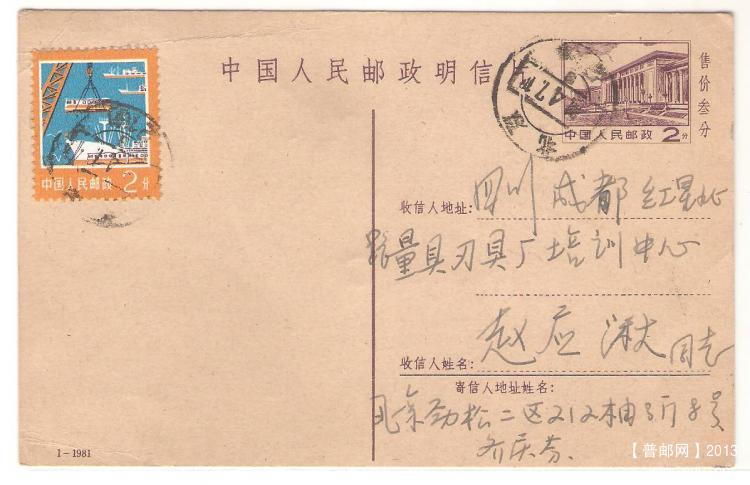 中国人民邮政明信片
售价叁分
中国人民邮政 2分
中国人民邮政 2分
收信人地址: 四川 成都 红星北
路量具刃具厂培训中心
收信人姓名: 赵应 同志
寄信人地址姓名:
北京劲松二区212楠3门8号
1-1981
【普邮网】2013